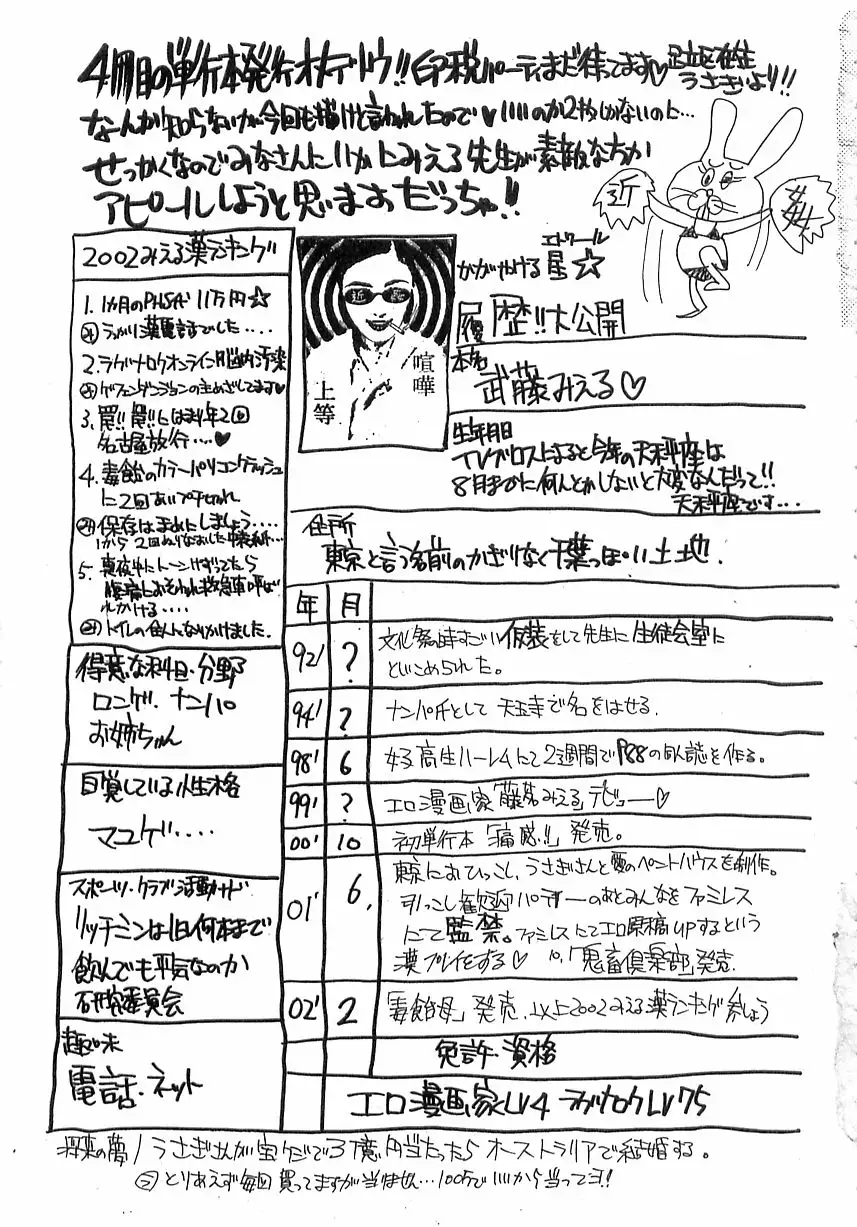 4冊目の単行本発行オメデトウ!!印税パーティまだ待ってます♡足立区在住
うさぎより!!
なーんか知らないが今回も描けと言われたので♡いいのか2枚しかないのに…
せっかくなのでみなさんにいかにみえる先生が素敵な方か
アピールしようと思いますっだっちゃ!!
近
2002みえる薬ランキング
1. 1カ月のPHS代 11万円☆
2. ラグナロクオンライン脳内汚染
3. 罠!! 罠!! にはまり年2回
名古屋旅行…♡
4. 毒飴のカラーパソコンクラッシュ
に2回
保存はまめにしましょう….
5. 真夜中にトーンけずってたら
腹痛におそわれ救急車呼ば
れかける….
トイレの住人になりかけました.
喧嘩
上等
エトワール
かがやける星☆
履歴!!大公開
本名
武藤みえる♡
生年月日
TVブロスによると今年の天秤座は
8月までに何とかしないと大変なんだって!!
天秤座です…
住所
東京と言う名前のかぎりなく千葉っぽい土地.
年 月
92' ? 文化祭の時すごい仮装をして先生に生徒会室に
とじこめられた。
94' ? ナンパ氏として天王寺で名をはせる.
98' 6 女子高生ハーレムにて2週間でP88の同人誌を作る。
99' ? エロ漫画家「藤茗みえる」デビュー♡
00' 10 初単行本「痛感!!」発売。
01' 6. 東京におひっこし、うさぎさんと愛のペントハウスを制作。
引っこし歓迎パーティーのあとみんなをファミレス
にて監禁。ファミレスにてエロ原稿UPするという
漢プレイをする♡ 10,「鬼畜倶楽部」発売.
02' 2 「毒飴母」発売.以上2002みえる薬ランキング参しょう
免許・資格
エロ漫画家LV4 ラグナロクLV75
得意な科目・分野
ロンゲ. ナンパ
お姉ちゃん
自覚している性格
マユゲ….
スポーツ・クラブ活動など
リッチミンは1日何本まで
飲んでも平気なのか
研究委員会
趣味
電話・ネット
将来の夢/うさぎさんが宝クジで3億円当たったらオーストラリアで結婚する。
とりあえず毎回買ってますが当りません…100万でいいから当ってヨ!!